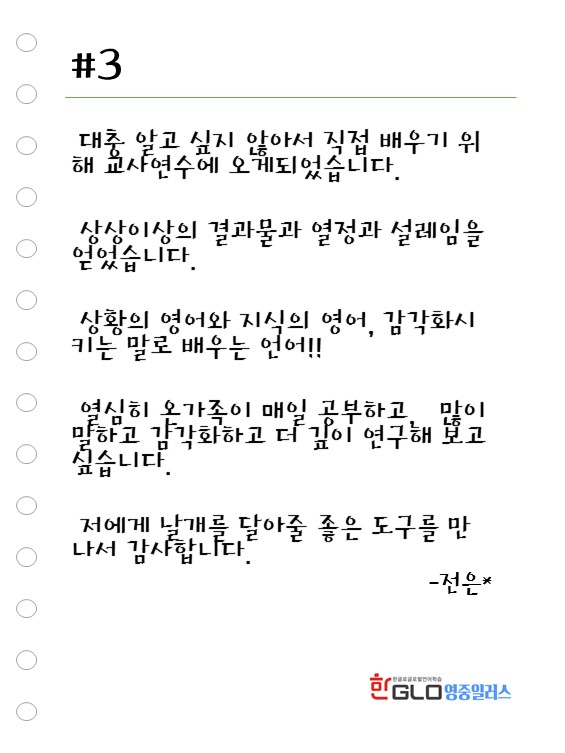 #3
대충 알고 싶지 않아서 직접 배우기 위
해 교사연수에 오게되었습니다.
상상이상의 결과물과 열정과 설레임을
얻었습니다.
상황의 영어와 지식의 영어, 감각화시
키는 말로 배우는 언어!!
열심히 온가족이 매일 공부하고, 많이
말하고 감각화하고 더 깊이 연구해 보고
싶습니다.
저에게 날개를 달아줄 좋은 도구를 만
나서 감사합니다.
-전은*
한글로글로벌언어학습
한GLO영중일러스